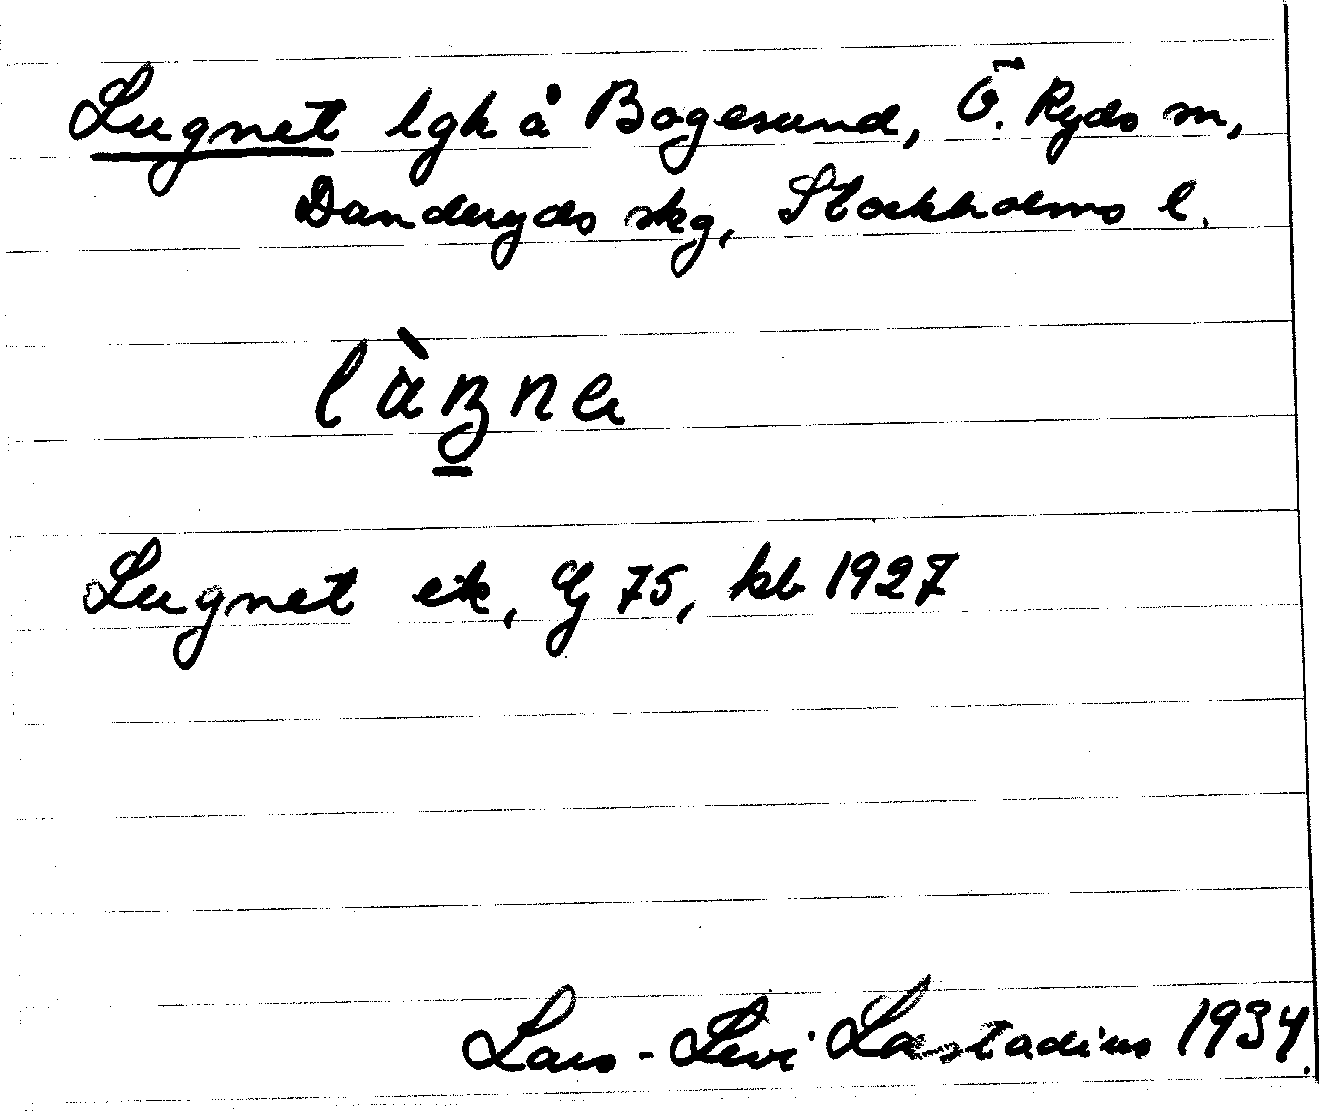 Lugnet lgh å Bogesund, Ö. Ryds sn,
Danderyds skg, Stockholms l.
Lugnet ek, Gj 75, kb 1927
Lars-Levi Læstadius 1934.